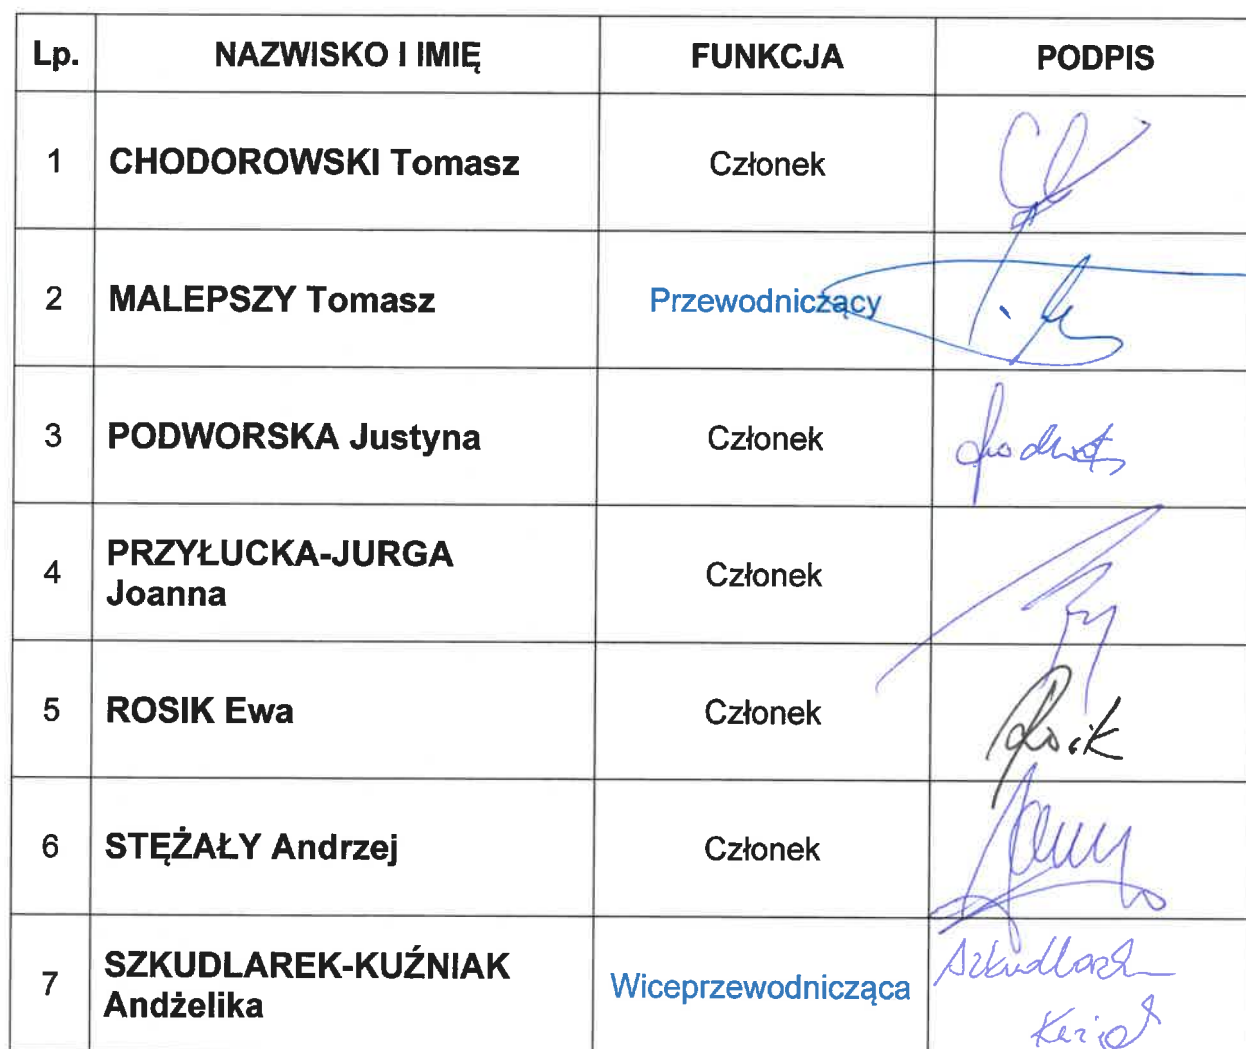 Lp. NAZWISKO I IMIĘ FUNKCJA PODPIS
1 CHODOROWSKI Tomasz Członek
2 MALEPSZY Tomasz Przewodniczący
3 PODWORSKA Justyna Członek
4 PRZYŁUCKA-JURGA
Joanna Członek
5 ROSIK Ewa Członek Rosik
6 STĘŻAŁY Andrzej Członek
7 SZKUDLAREK-KUŹNIAK
Andżelika Wiceprzewodnicząca Szkudlarek